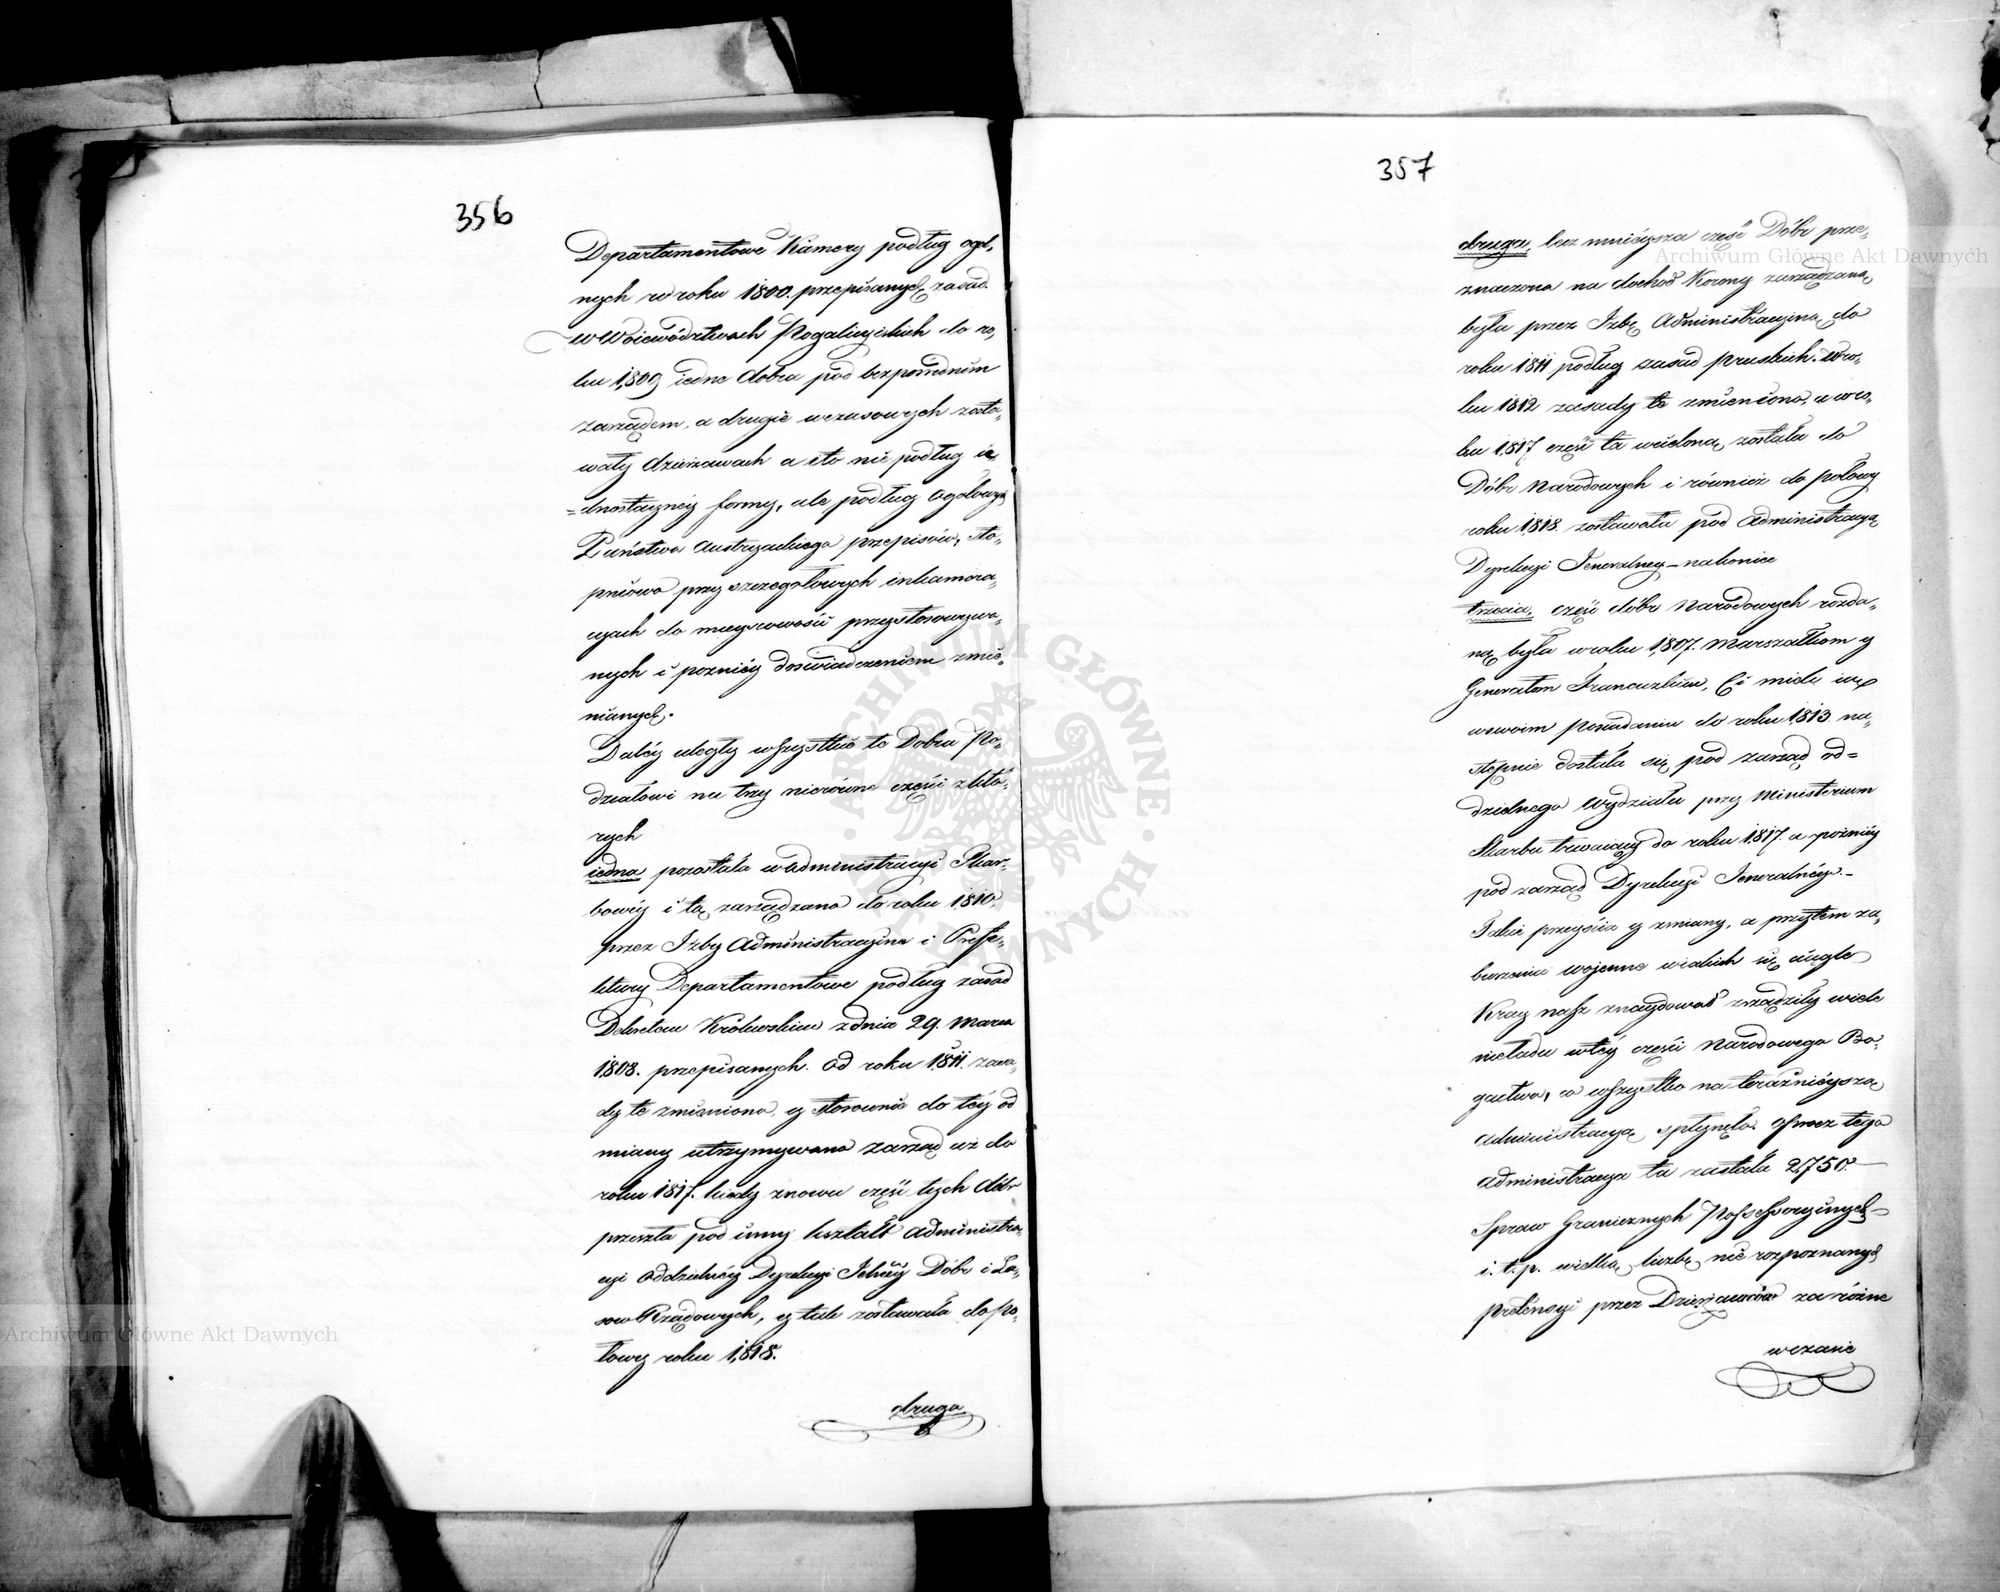 356
Departamentowe Kamery podług ogól„
nych w roku 1800. przepisanych zasad.
w Woiewództwach Pogalicyiskich do ro„
ku 1,809 iedne dobra pod bezpośrednim
zarządem, a drugie w czasowych zosta„
wały dzierzawach a to nie podług ie
=dnostayney formy, ale podług ogolnych
Państwa Austryackiego przepisów, sto„
pniowo przy szczegołowych inkamera„
cyach do mieyscowości przystosowywa„
nych i pozniéy doświadczeniem zmie„
nianych.
Daléy uległy wszystkie te Dobra Po„
działowi na trzy nierówne części z któ„
rych
iedna pozostała w Administracyi Skar„
bowéy i tą zarządzano do roku 1810.
przez Izby Administracyine i Prefe„
ktury Departamentowe podług zasad
Dekretem Królewskim z dnia 29. Marca
1808. przepisanych. Od roku 1811. zasa„
dy te zmieniono, y stosownie do téy od
miany utrzymywano zarząd aż do
roku 1817. kiedy znowu część tych dóbr
przeszła pod inny kształt Administra„
cyi oddzielnéy Dyrekcyi Jelnéy Dóbr i La„
sow Rządowych, y tak zostawała do po„
łowy roku 1,818.
druga
357
druga, lecz mnieysza część Dóbr prze„
znaczona na dochod Korony zarządzaną
była przez Izbę Administracyiną do
roku 1811 podług zasad pruskich. W ro„
ku 1812 zasady te zmieniono, a w ro„
ku 1,817 część ta wcieloną została do
Dóbr Narodowych i również do połowy
roku 1,818. zostawała pod Administracyą
Dyrekcyi Jeneralney – nakoniec
trzecia, część dóbr Narodowych rozda„
ną była w roku 1,807. Marszałkom y
Generałom Francuzkim, Ci mieli ią
w swoim posiadaniu do roku 1813 na„
stępnie dostała się pod zarząd od=
dzielnego Wydziału przy Ministerium
Skarbu trwaiący do roku 1,817. a pozniéy
pod zarząd Dyrekcyi Jeneralnéy. –
Takie przeyścia y zmiany, a przytem za„
burzenia woienne w iakich się ciągle
Kray nasz znaydował zrządziły wiele
nieładu w téy części Narodowego Bo„
gactwa, co wszystko na teraznieyszą
Administracyą spłynęło. Oprocz tego
Administracya ta zastała 2,750. –
Spraw Granicznych Possessoryinych –
i. t. p. wielką liczbę nie rozpoznanych
pretensyi przez Dzierzawców za różne
wczasie
Archiwum Główne Akt Dawnych
Archiwum Główne Akt Dawnych
ARCHIWUM GŁÓWNE AKT DAWNYCH